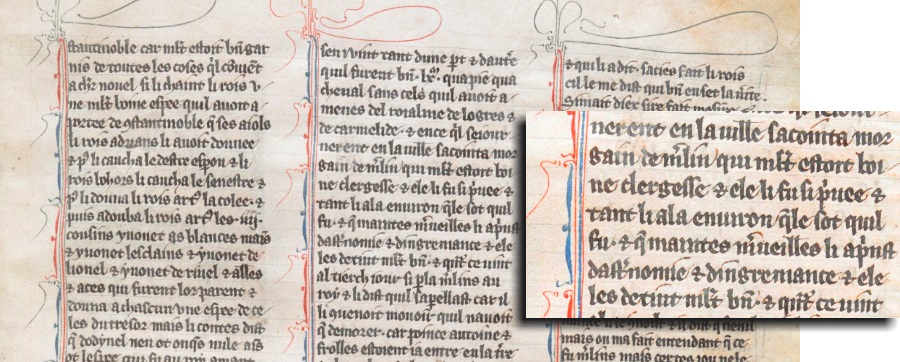 stantinoble car mlt estoit bn gar
nis de toutes les coses ql couient
a chr nouel. si li chaint li rois v
ne mlt boine espee quil auoit a
portee de 9stantinoble q ses aiols
li rois adrians li auoit donnee
& p li caucha le destre espon & li
rois bohors li caucha le senestre &
p li donna li rois art la colee. &
puis adouba li rois art les .iij.
cousins yuonet as blances mains
& yuonet lesclains & yuonet de
lionel & yuonet de riuel & alles
& aces qui furent lor parent &
donna a chascun vne espee de ce
les du tresor mais li contes dist
q dodynel nen ot onqs mie ais
ot lespee qui fu au roi amant
sen vint tant dune pt & dautre
quil furent bn .lx. qua pie qua
cheual sans cels quil auoit a
menes del roialme de logres &
de carmelide. & ence ql seiour
nerent en la uille sacointa mor
gain de mlin qui mlt estoit boi
ne clergesse & ele li fu si puee &
tant li ala enuiron qle sot quil
fu. & q maintes mueilles li apnst
dastnomie & dingremance & ele
les detint mlt bn. & qnt ce uint
al tierch iour si pla mlins au
roi & li dist quil sapellast car il
li quenoit mouoir quil nauoit
q demorer. car ponce antoine &
frolles estoient ia entre en la tre
& qui li a dit. sacies fait li rois
cil le me dist qui bn en set la urte.
nerent en la uille sacointa mor
gain de mlin qui mlt estoit boi
ne clergesse & ele li fu si puee &
tant li ala enuiron qle sot quil
fu. & q maintes mueilles li apnst
dastnomie & dingremance & ele
les detint mlt bn. & qnt ce uint
mais on ma fait entendant q ce
fu mlins mais certes iou nele